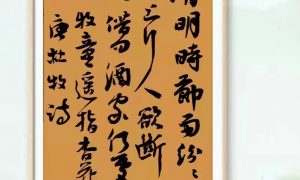 清明時節雨紛〻
上行人欲斷
借問酒家何處
牧童遥指杏花
唐杜牧詩